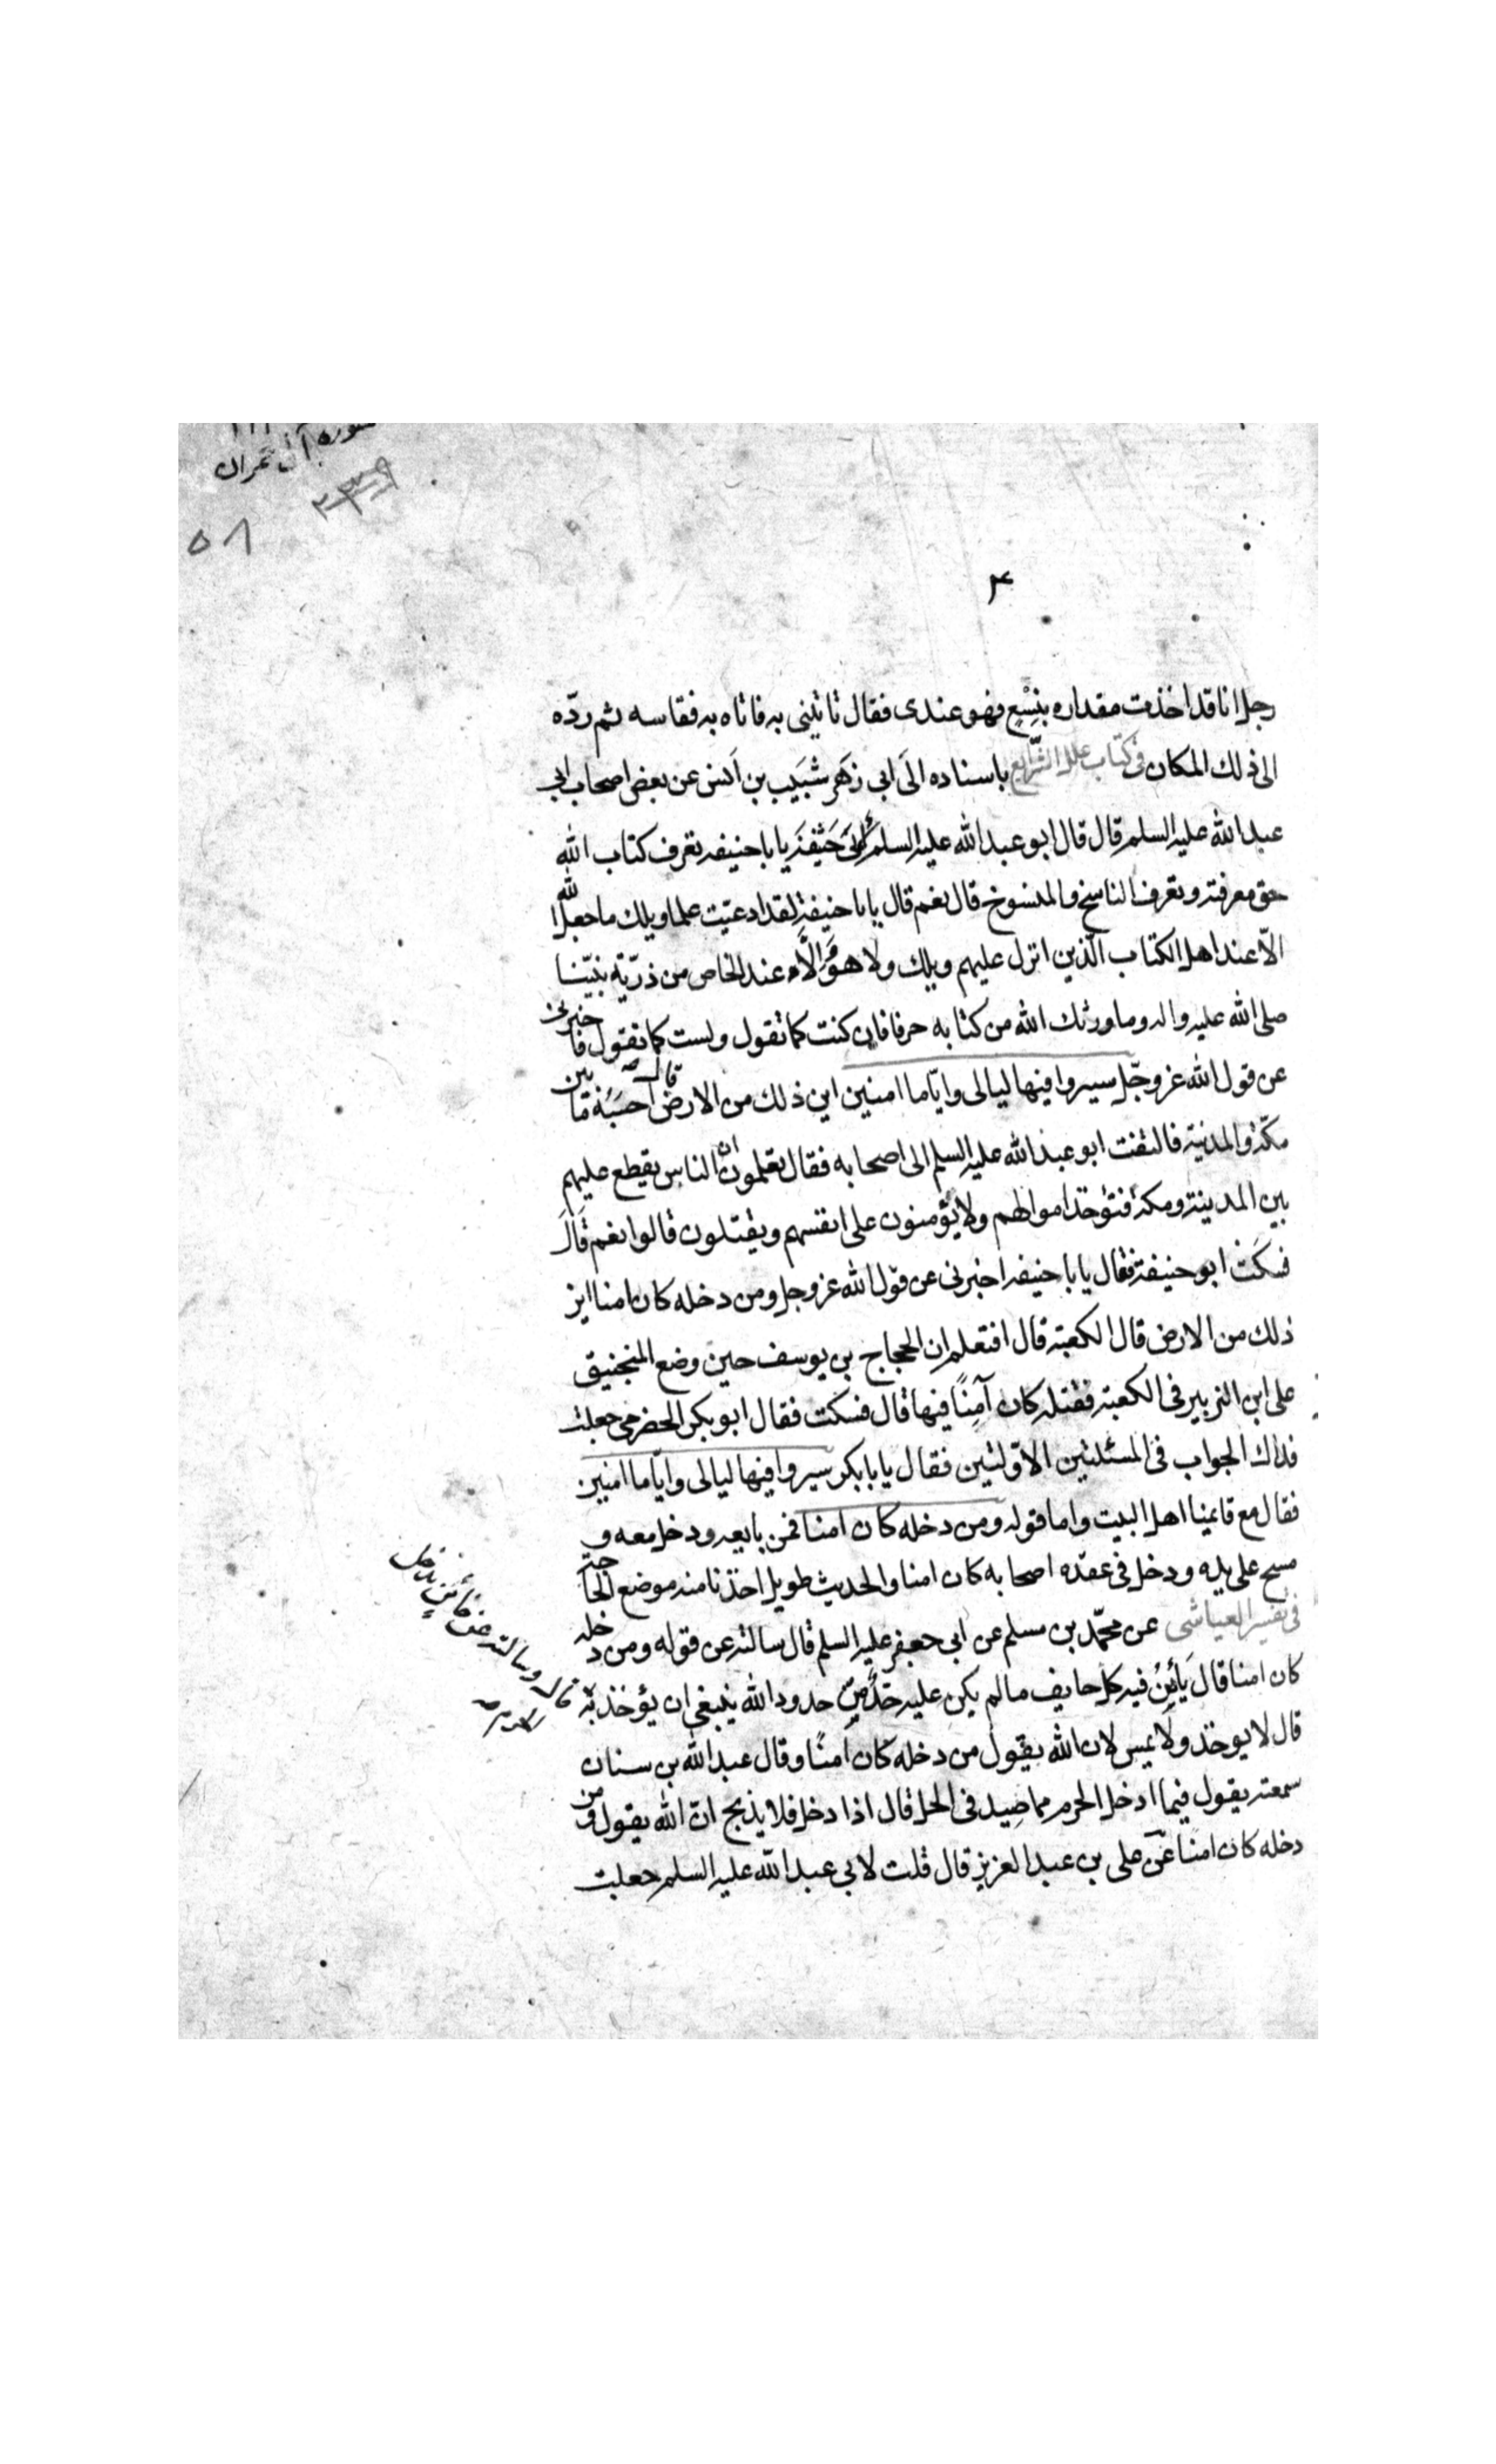 سورة آل عمران
٥٨
٤
رجل انا قد اخذت مقداره بنِسْعٍ فهو عندى فقال تاتينى به فاتاه به فقاسه ثم ردّه
الى ذلك المكان فى كتاب علل الشرايع باسناده الى ابى زهر شبيب بن انس عن بعض اصحاب ابى
عبد الله عليه السلم قال قال ابو عبد الله عليه السلم لابى حنيفة يا با حنيفه تعرف كتاب الله
حق معرفته وتعرف الناسخ والمنسوخ قال نعم قال يا با حنيفة لقد ادعيت علما ويلك ما جعل الله
الّا عند اهل الكتاب الّذين انزل عليهم ويلك ولا هو الّا عند الخاص من ذرّيّة نبيّنا
صلى الله عليه واله وما ورثك الله من كتابه حرفا فان كنت كما تقول ولست كما تقول فاخبرنى
عن قول الله عز وجلّ سيروا فيها ليالى وايّاما امنين اين ذلك من الارض قال احسبه ما بين
مكة والمدنية فالتفت ابو عبد الله عليه السلم الى اصحابه فقال تعلمون ان الناس يقطع عليهم
بين المدينة ومكة فتؤخذ اموالهم ولا يؤمنون على انفسهم ويقتلون قالوا نعم قال
فسكت ابو حنيفة فقال يا با حنيفه اخبرنى عن قول الله عز وجل ومن دخله كان امنا اين
ذلك من الارض قال الكعبة قال افتعلم ان الحجاج بن يوسف حين وضع المنجنيق
على ابن الزبير فى الكعبة فقتله كان آمِنًا فيها قال فسكت فقال ابو بكر الحضرمى جعلت
فداك الجواب فى المسئلتين الاوّلتين فقال يا با بكر سيروا فيها ليالى وايّاما امنين
فقال مع قائمنا اهل البيت واما قوله ومن دخله كان امنا فمن بايعه ودخل معه و
مسح على يده ودخل فى عقده اصحابه كان امنا والحديث طويل اخذنا منه موضع الحاجة
فى تفسير العياشى عن محمّد بن مسلم عن ابى جعفر عليه السلم قال سالته عن قوله ومن دخله
كان امنا قال يأمن فيه كل خايف ما لم يكن عليه حدّ من حدود الله ينبغى ان يؤخذ به
قال وسالته عن طائر يدخل الحرم
قال لا يوخذ ولا يمس لان الله يقول من دخله كان امنًا وقال عبد الله بن سنان
سمعته يقول فيما ادخل الحرم مما صِيد فى الحل قال اذا دخل فلا يذبح انّ الله يقول ومن
دخله كان امنا عن على بن عبد العزيز قال قلت لابى عبد الله عليه السلم جعلت